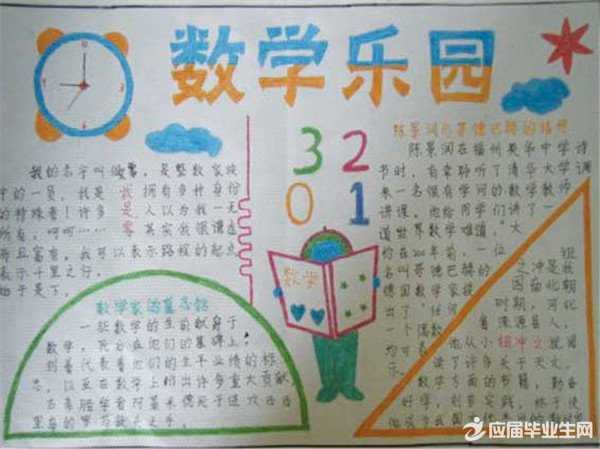 数学乐园
陈景润与哥德巴赫的猜想
3 2
0 1
我的名字叫做零,是整数家族
中的一员,我是 我 拥有多种身份
的特殊者!许多 是 人以为我一无
所有,呵呵…… 零 其实我很谦虚
而且富有,我可以表示路程的起点
表示千里之行,
始于足下。
数学家的墓志铭
一些数学家生前献身于
数学,死后在他们的墓碑上,
刻着代表着他们的生平业绩的标
志,
古希腊学者阿基米德死于进攻西西
里岛的罗马敌人之手。
陈景润在福州英华中学读
书时,有幸聆听了清华大学调
来一名很有学问的数学教师
讲课。他给同学们讲了一
道世界数学难题。"大
约在200年前,一位
名叫哥德巴赫的
德国数学家提
出了"任何
一个偶数
均可
祖
冲之是我
国南北朝
时期,河北
省涞源县人,
他从小
祖冲之
就阅
读了许多关于天文、
数学方面的书籍,勤奋
好学,刻苦实践,终于使
数学
应届毕业生网